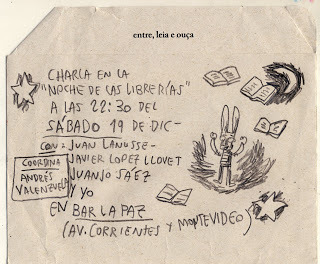 entre, leia e ouça
CHARLA EN LA
"NOCHE DE LAS LIBRERÍAS"
A LAS 22:30 DEL
SÁBADO 19 DE DIC-
CON: JUAN LANUSSE-
JAVIER LOPEZ LLOVET
JUANJO SÁEZ
COORDINA
ANDRÉS
VALENZUELA
Y YO
EN BAR LA PAZ
(AV. CORRIENTES Y MONTEVIDEO)